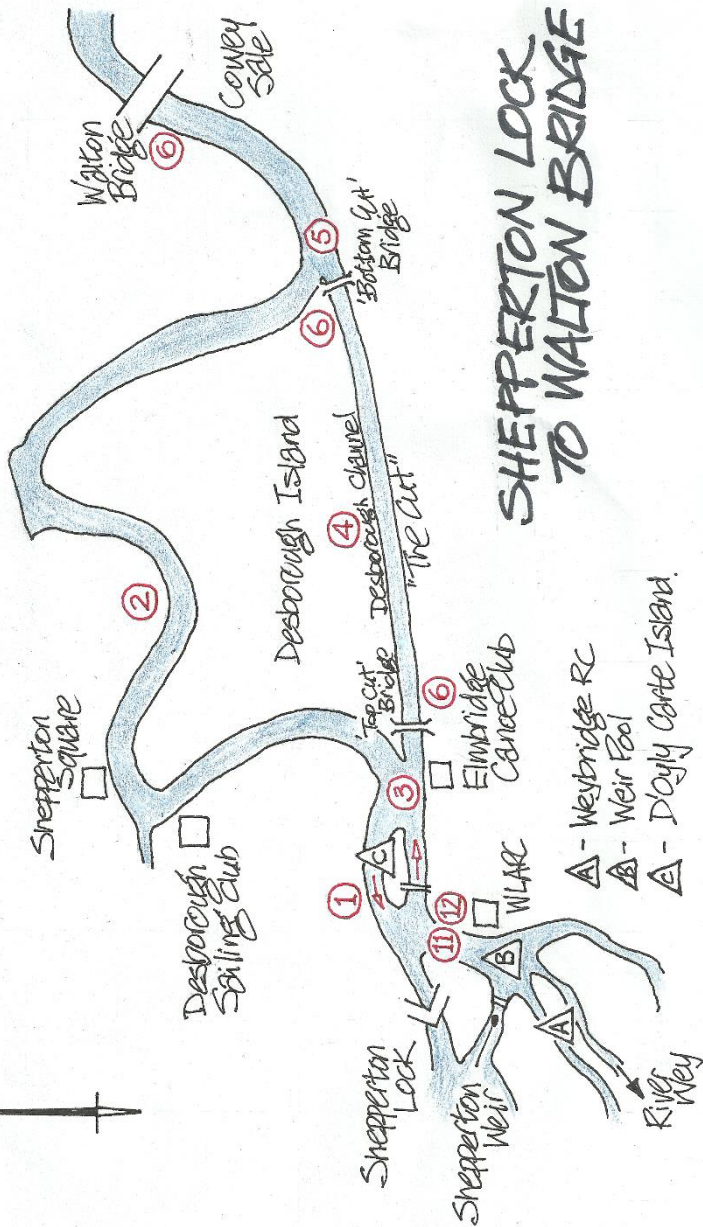 SHEPPERTON LOCK
TO WALTON BRIDGE
Walton
Bridge
6
Cowey
Sale
5
'Bottom Cut'
Bridge
6
Desborough Island
4
Desborough Channel
"The Cut"
2
Shepperton
Square
Desborough
Sailing Club
'Top Cut'
Bridge
6
Elmbridge
Canoe Club
3
C
1
11
12
WLARC
B
A
Shepperton
Lock
Shepperton
Weir
River
Wey
A - Weybridge RC
B - Weir Pool
C - D'Oyly Carte Island.